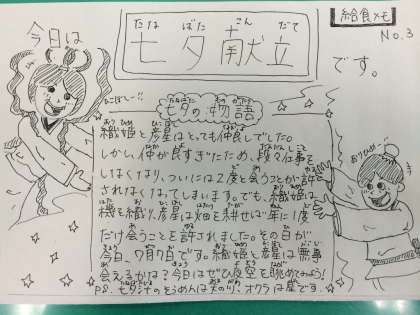 給食メモ
No.3
今日は
たな ばた こん だて
七夕献立
です。
ひこぼしー!!
たなばた ものがたり
七夕の物語
おりひめ
織姫と彦星はとっても仲良しでした。
しかし、仲が良すぎたため、段々仕事を
しなくなり、ついには2度と会うことが許
されなくなってしまいます。でも、織姫は
機を織り、彦星は畑を耕せば年に1度
だけ会うことを許されました。その日が
今日、7月7日です。織姫と彦星は無事
会えるかは?今日はぜひ夜空を眺めてみよう!
P.S. 七夕汁のそうめんは天の川、オクラは星です。